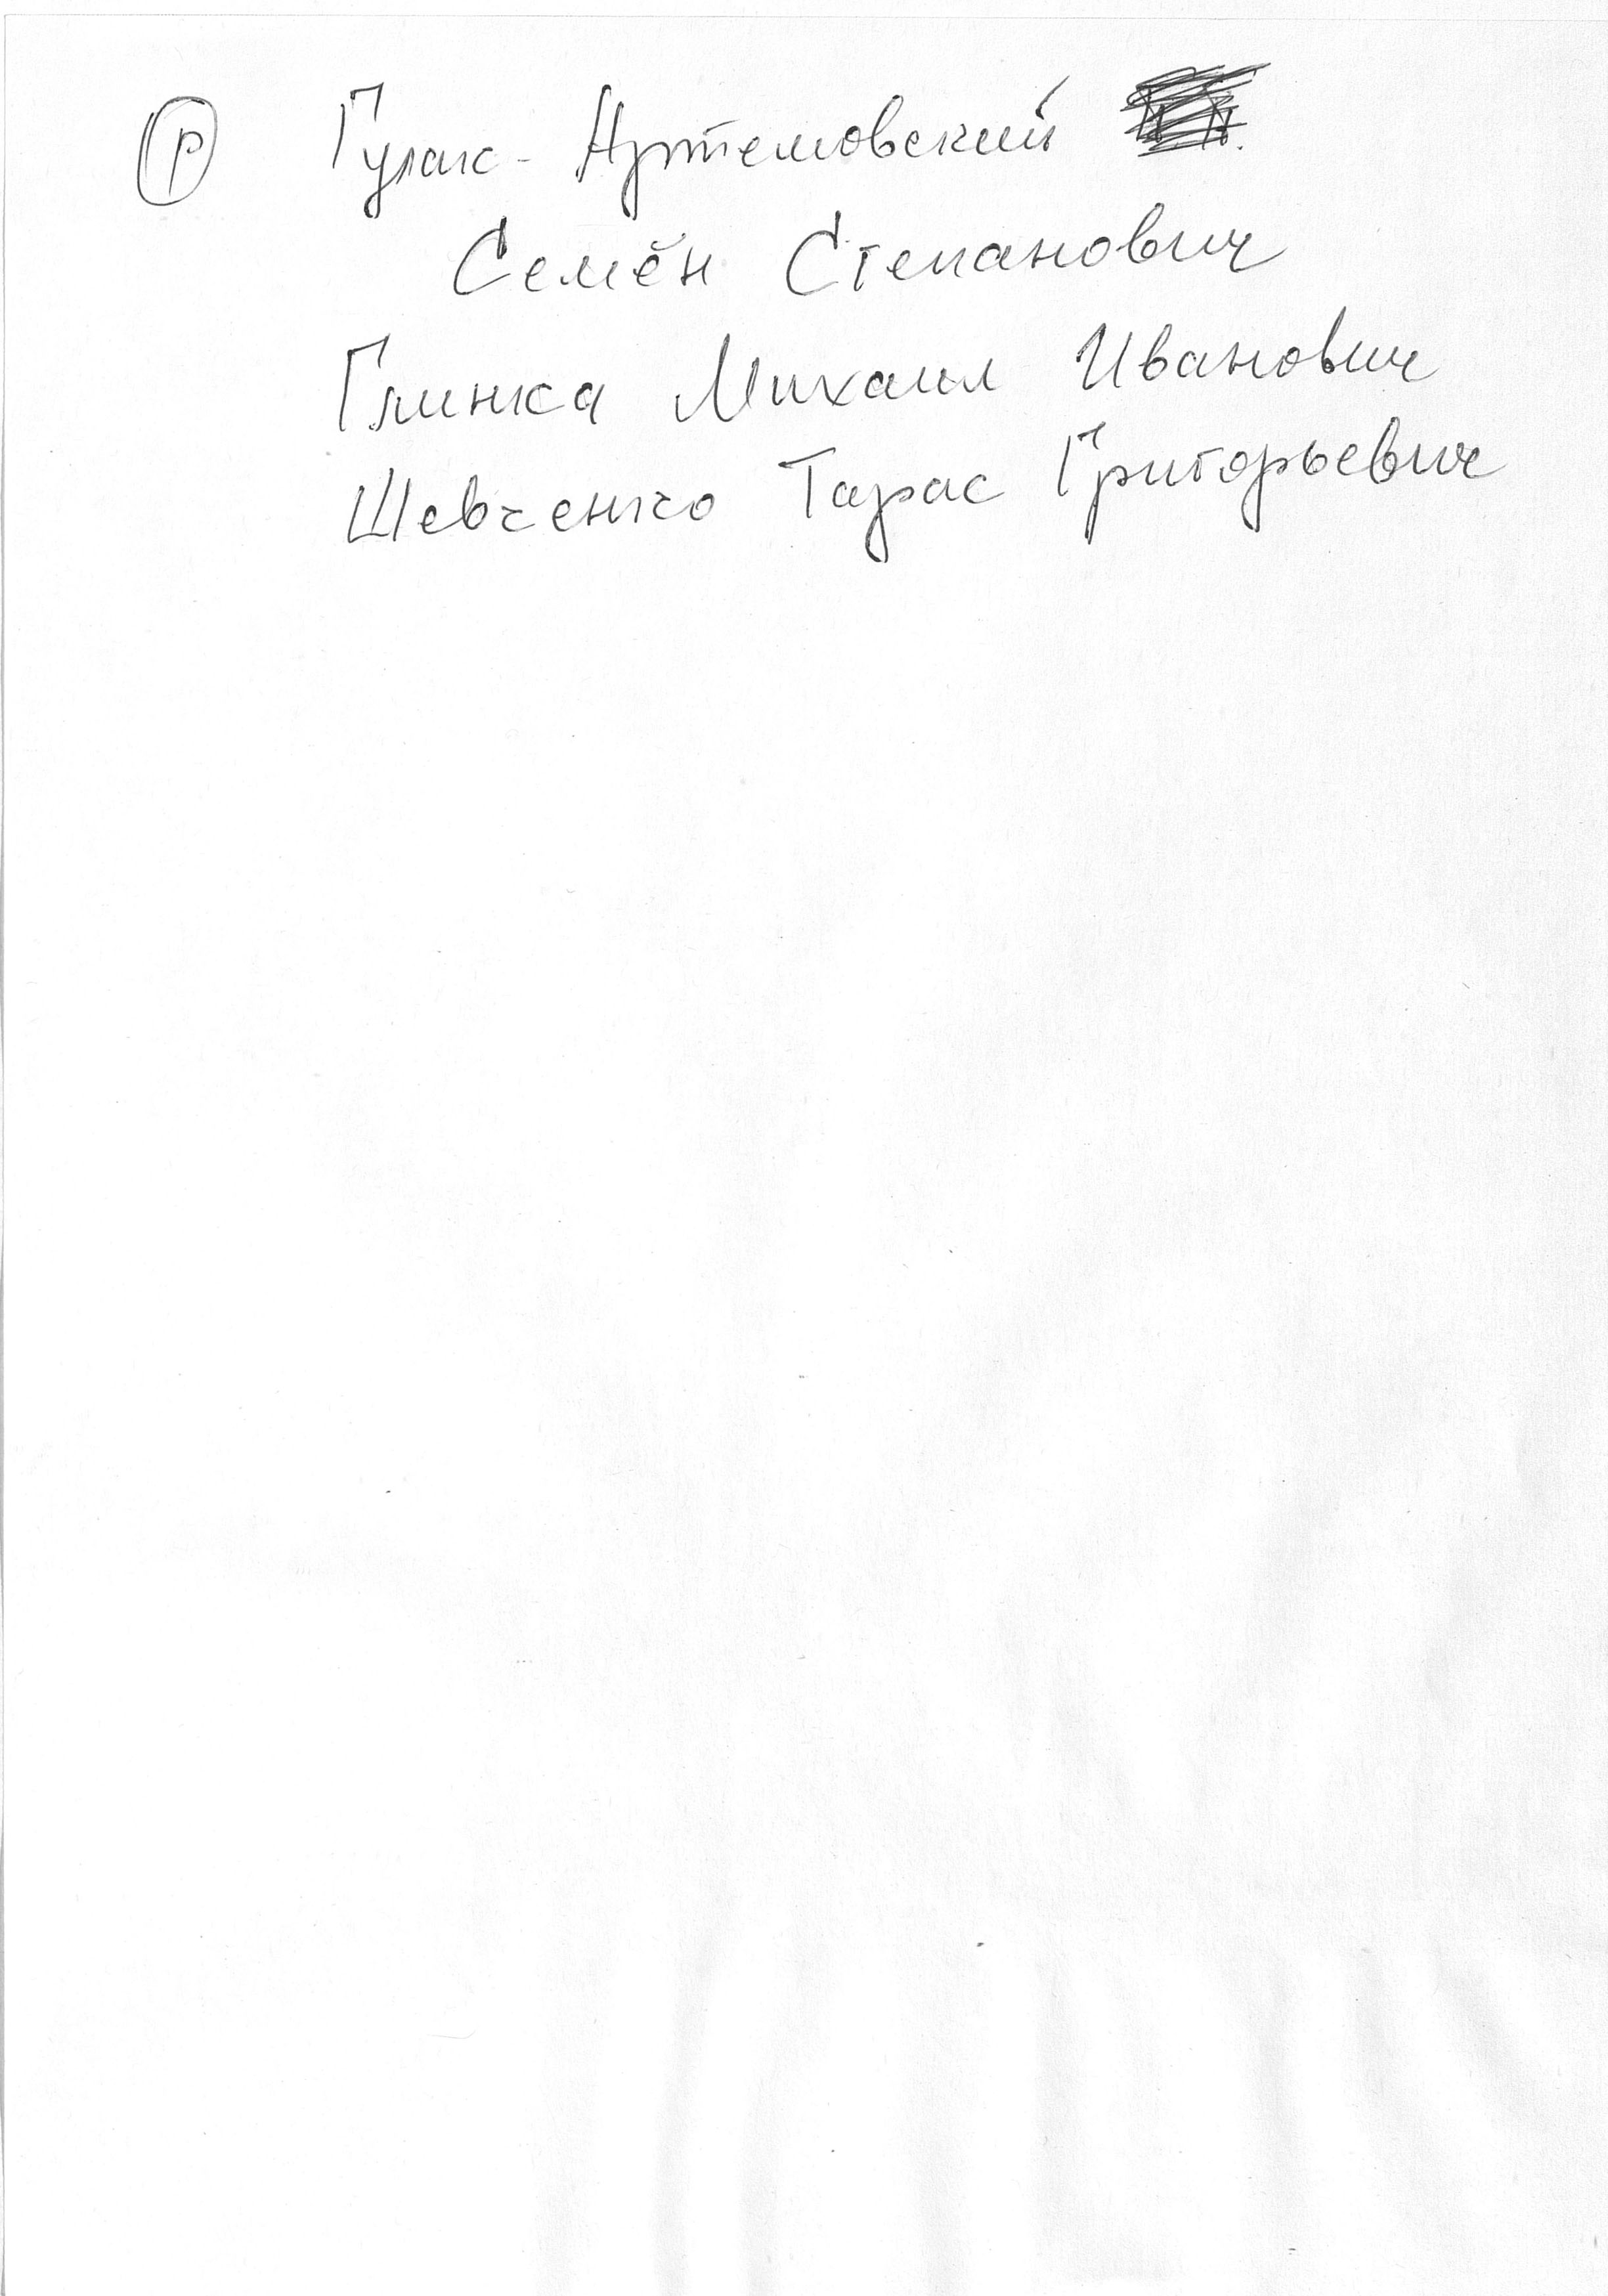 Р Гулак-Артемовский
Семён Степанович
Глинка Михаил Иванович
Шевченко Тарас Григорьевич